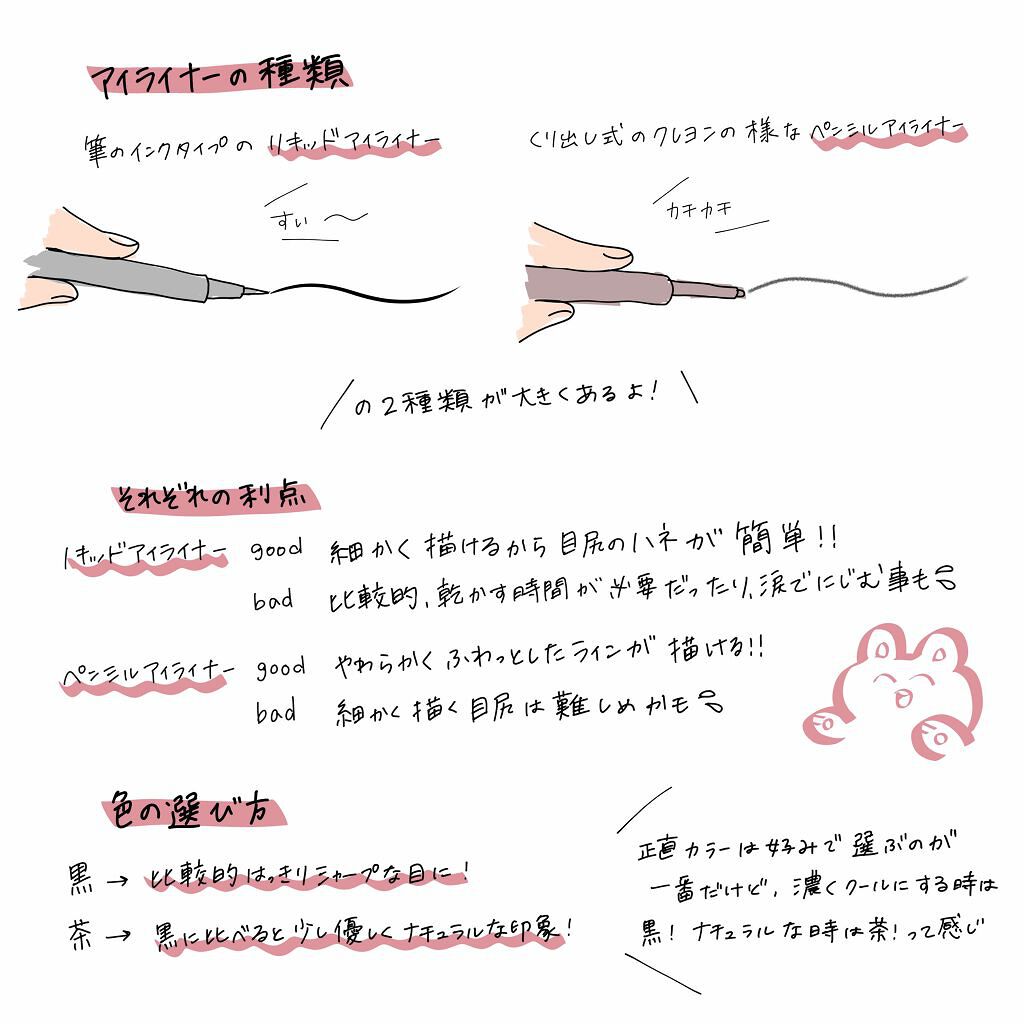 アイライナーの種類
筆のインクタイプの リキッドアイライナー
くり出し式のクレヨンの様な ペンシルアイライナー
すぃ〜
カチカチ
の2種類が大きくあるよ!
それぞれの利点
リキッドアイライナー good 細かく描けるから目尻のハネが簡単!!
bad 比較的、乾かす時間が必要だったり、涙でにじむ事も
ペンシルアイライナー good やわらかくふわっとしたラインが描ける!!
bad 細かく描く目尻は難しめかも
色の選び方
黒→比較的はっきりシャープな目に!
茶→黒に比べると少し優しくナチュラルな印象!
正直カラーは好みで選ぶのが
一番だけど、濃くクールにする時は
黒!ナチュラルな時は茶!って感じ